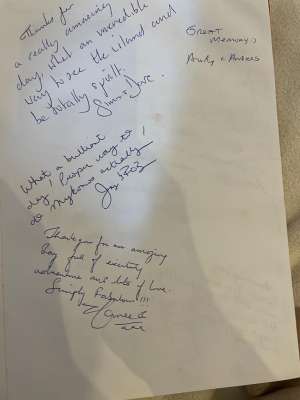 Thanks for
a really amazing
day, what an incredible
way to see the island and
be totally spoilt.
Simon & Dave
Great
memories
Andy &
What a brilliant
day! Proper way to
do Mykonos initially!
Jay
Thank you for an amazing
day full of exciting
adventure and lots of love.
Simply Fabulous!!!